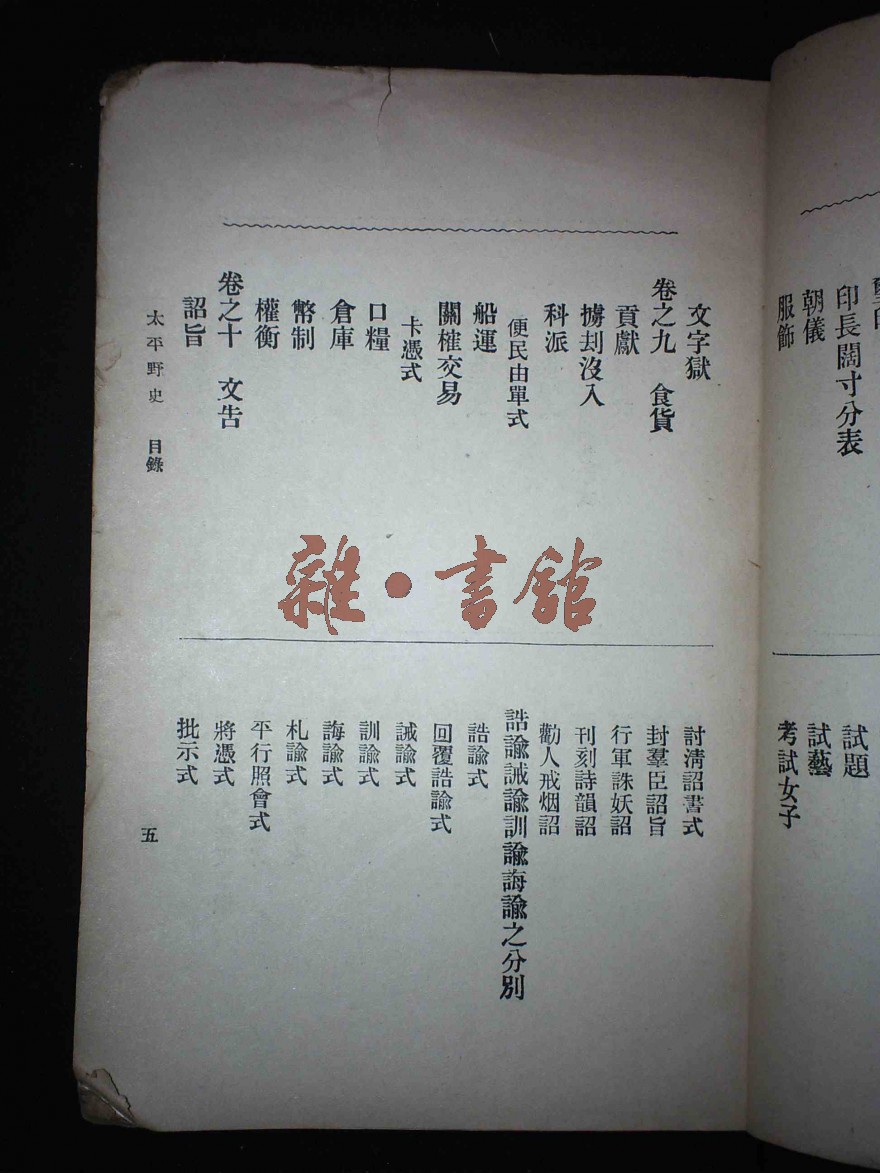 印長闊寸分表
朝儀
服飾
試題
試藝
考試女子
文字獄
卷之九 食貨
貢獻
擄刦沒入
科派
便民由單式
船運
關榷交易
卡憑式
口糧
倉庫
幣制
權衡
卷之十 文告
詔旨
討清詔書式
封羣臣詔旨
行軍誅妖詔
刊刻詩韻詔
勸人戒烟詔
誥諭誡諭訓諭誨諭之分別
誥諭式
回覆誥諭式
誡諭式
訓諭式
誨諭式
札諭式
平行照會式
將憑式
批示式
太平野史 目錄
五
雜·書館